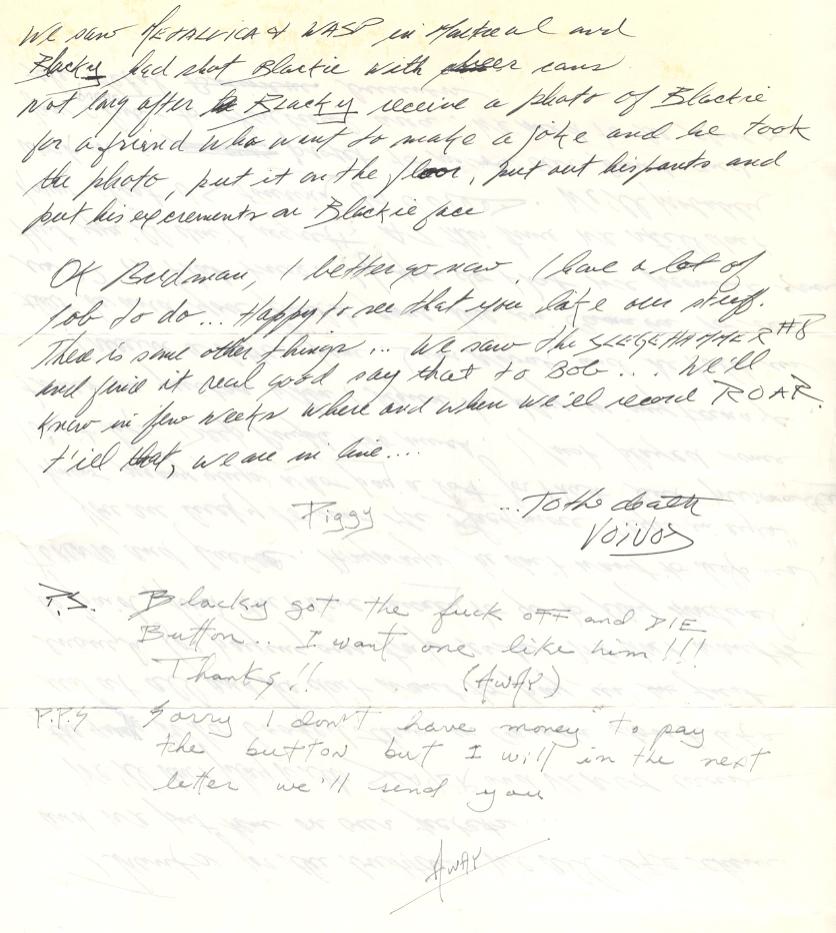 We saw METALLICA & WASP in Montreal and
Blacky had shot Blackie with beer cans
Not long after Blacky receive a photo of Blackie
for a friend who want to make a joke and he took
the photo, put it on the floor, put out his pants and
put his excrements on Blackie face
OK Birdman, I better go now. I have a lot of
job to do... Happy to see that you like our stuff.
There is some other things... We saw the SLEDGEHAMMER #8
and find it real good say that to Bob... We'll
know in few weeks where and when we'll record ROAR.
t'ill that, we are in line....
Piggy
...To the death
VOÏVOD
P.S. Blacky got the fuck OFF and DIE
Button... I want one like him!!!
Thanks!! (AWAY)
P.P.S Sorry I don't have money to pay
the button but I will in the next
letter we'll send you
AWAY